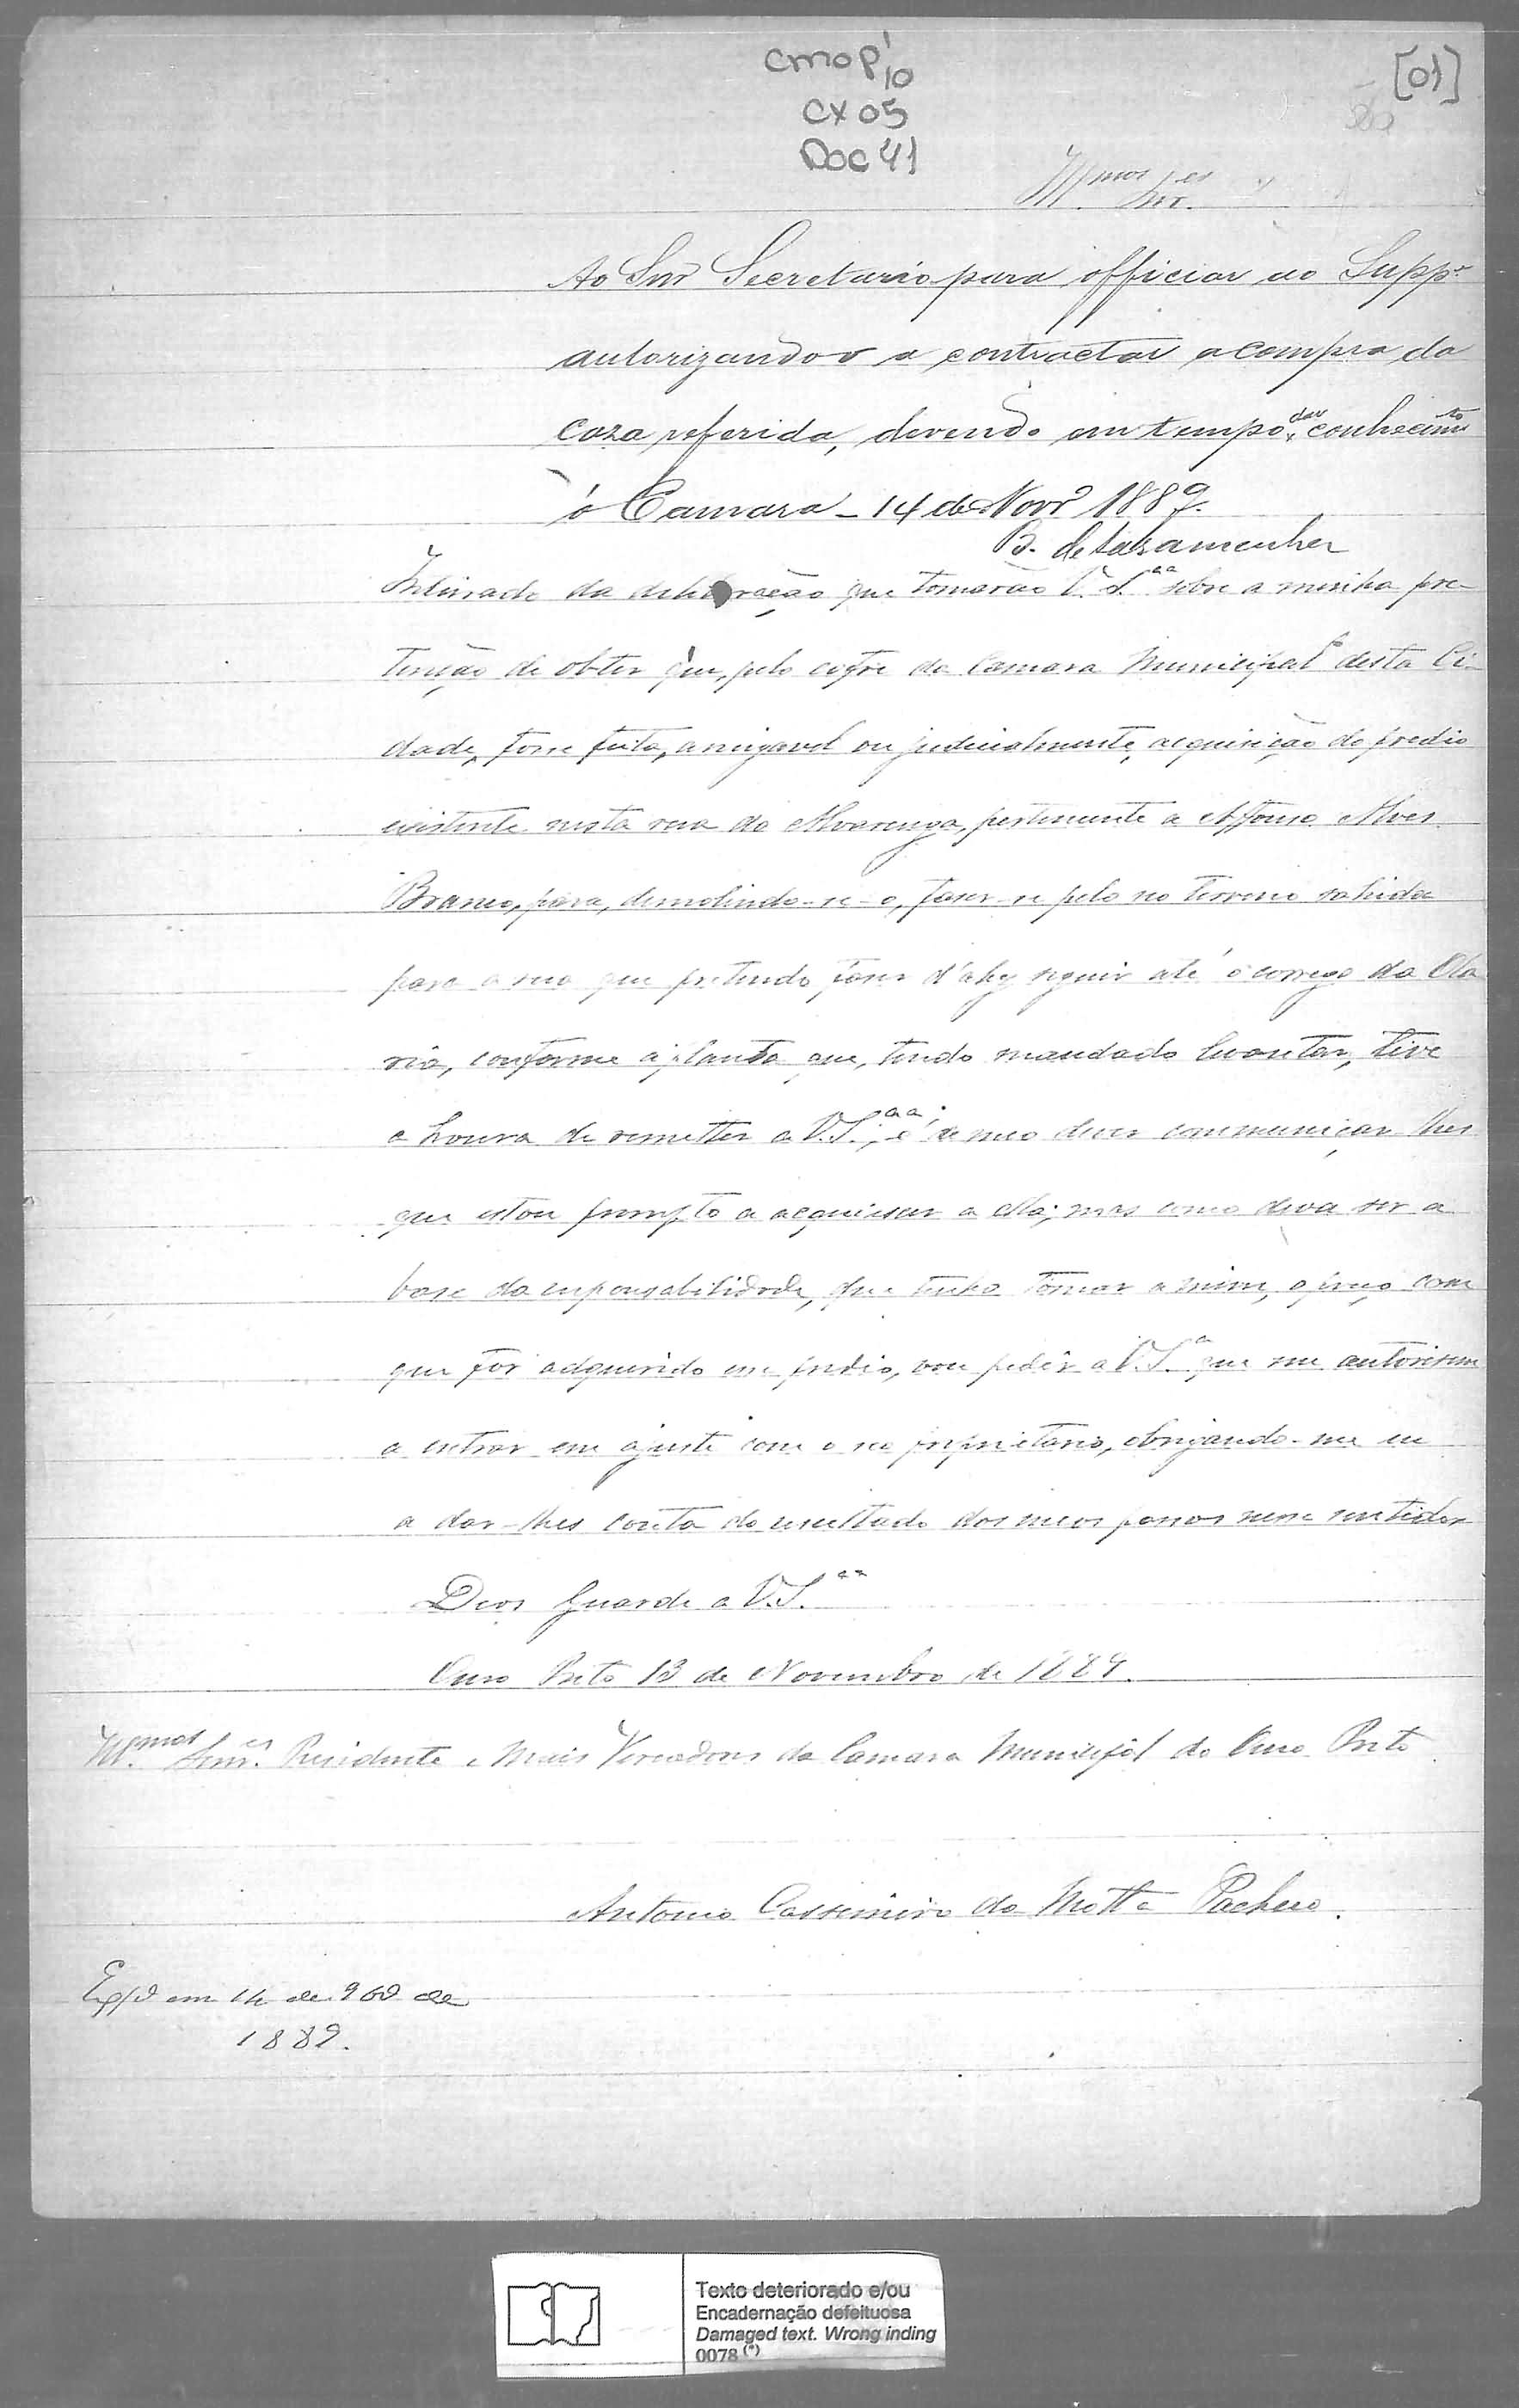 CMOP 1/10
CX 05
DOC 41
[01]
Illmos Snres
Ao Snr Secretario para officiar ao Suppe
autorizando o a contractar a compra da
caza referida, devendo em tempo dar conhecimto
á Camara - 14 de Novro 1889.
B. de Saramenha
Inteirado da deliberação que tomarão V. S.as sobre a minha pre-
tenção de obter que, pelo cofre da Camara Municipal desta Ci-
dade, fosse feita, amigavel ou judicialmente, acquisição do predio
existente nesta rua do Alvarenga, pertencente a Affonso Alves
Branco, para, demolindo-se-o, faser-se pelo seo terreno sahida
para a rua que pretendo faser d'ahy seguir até o corrego da Ola
ria, conforme a planta que, tendo mandado levantar, tive
a honra de remetter a V.S.as; é de meo dever communicar-lhes
que estou prompto a acquiescer a ella; mas como deva ser a
base da responsabilidade, que tenho tomar a mim, o preço com
que for adquerido esse predio, vou pedir a V.S.as que me autorisem
a entrar em ajuste com o seo proprietario, obrigando-me eu
a dar-lhes conta do resultado dos meos passos nesse sentido.
Deos Guarde a V.S.as
Ouro Preto 13 de Novembro de 1889.
Illmos Snres Presidente e Mais Vereadores da Camara Municipal do Ouro Preto
Antonio Cassemiro da Motta Pacheco.
Expdo em 14 de 9bro de
1889.
Texto deteriorado e/ou
Encadernação defeituosa
Damaged text. Wrong inding
0078 (*)